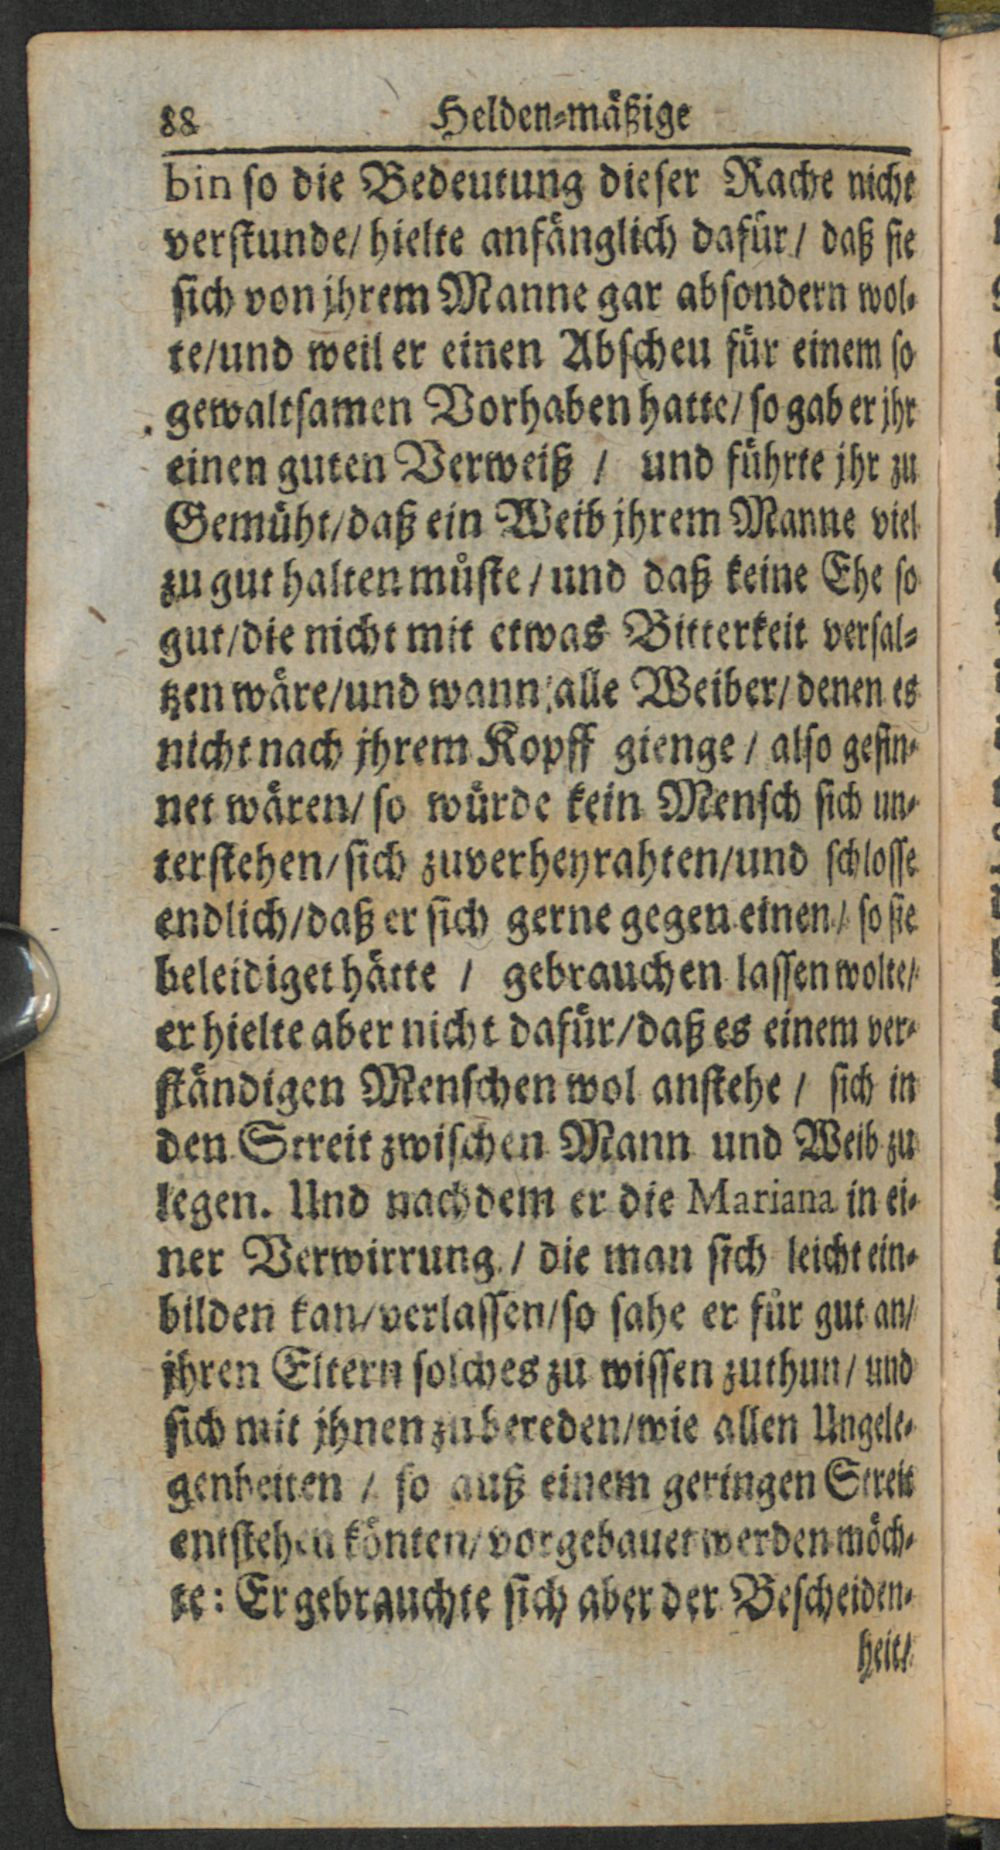 88 Helden-mäßige
bin so die Bedeutung dieser Rache nicht
verstunde/ hielte anfänglich dafür/ daß sie
sich von jhrem Manne gar absondern wol-
te/und weil er einen Abscheu für einem so
gewaltsamen Vorhaben hatte/ so gab er jhr
einen guten Verweiß / und führte jhr zu
Gemüht/daß ein Weib jhrem Manne viel
zu gut halten müste / und daß keine Ehe so
gut/die nicht mit etwas Bitterkeit versal-
tzen wäre/und wann alle Weiber/ denen es
nicht nach jhrem Kopff gienge / also gesin-
net wären/ so würde kein Mensch sich un-
terstehen/sich zuverheyrahten/und schlosse
endlich/daß er sich gerne gegen einen/ so sie
beleidiget hätte / gebrauchen lassen wolte/
er hielte aber nicht dafür/daß es einem ver-
ständigen Menschen wol anstehe / sich in
den Streit zwischen Mann und Weib zu
legen. Und nachdem er die Mariana in ei-
ner Verwirrung / die man sich leicht ein-
bilden kan/verlassen/so sahe er für gut an/
jhren Eltern solches zu wissen zuthun/ und
sich mit jhnen zu bereden/wie allen Ungele-
genheiten / so auß einem geringen Streit
entstehen könten/ vorgebauet werden möch-
te: Er gebrauchte sich aber der Bescheiden-
heit/